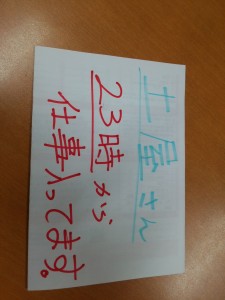 土屋さん
23時から
仕事入ってます。